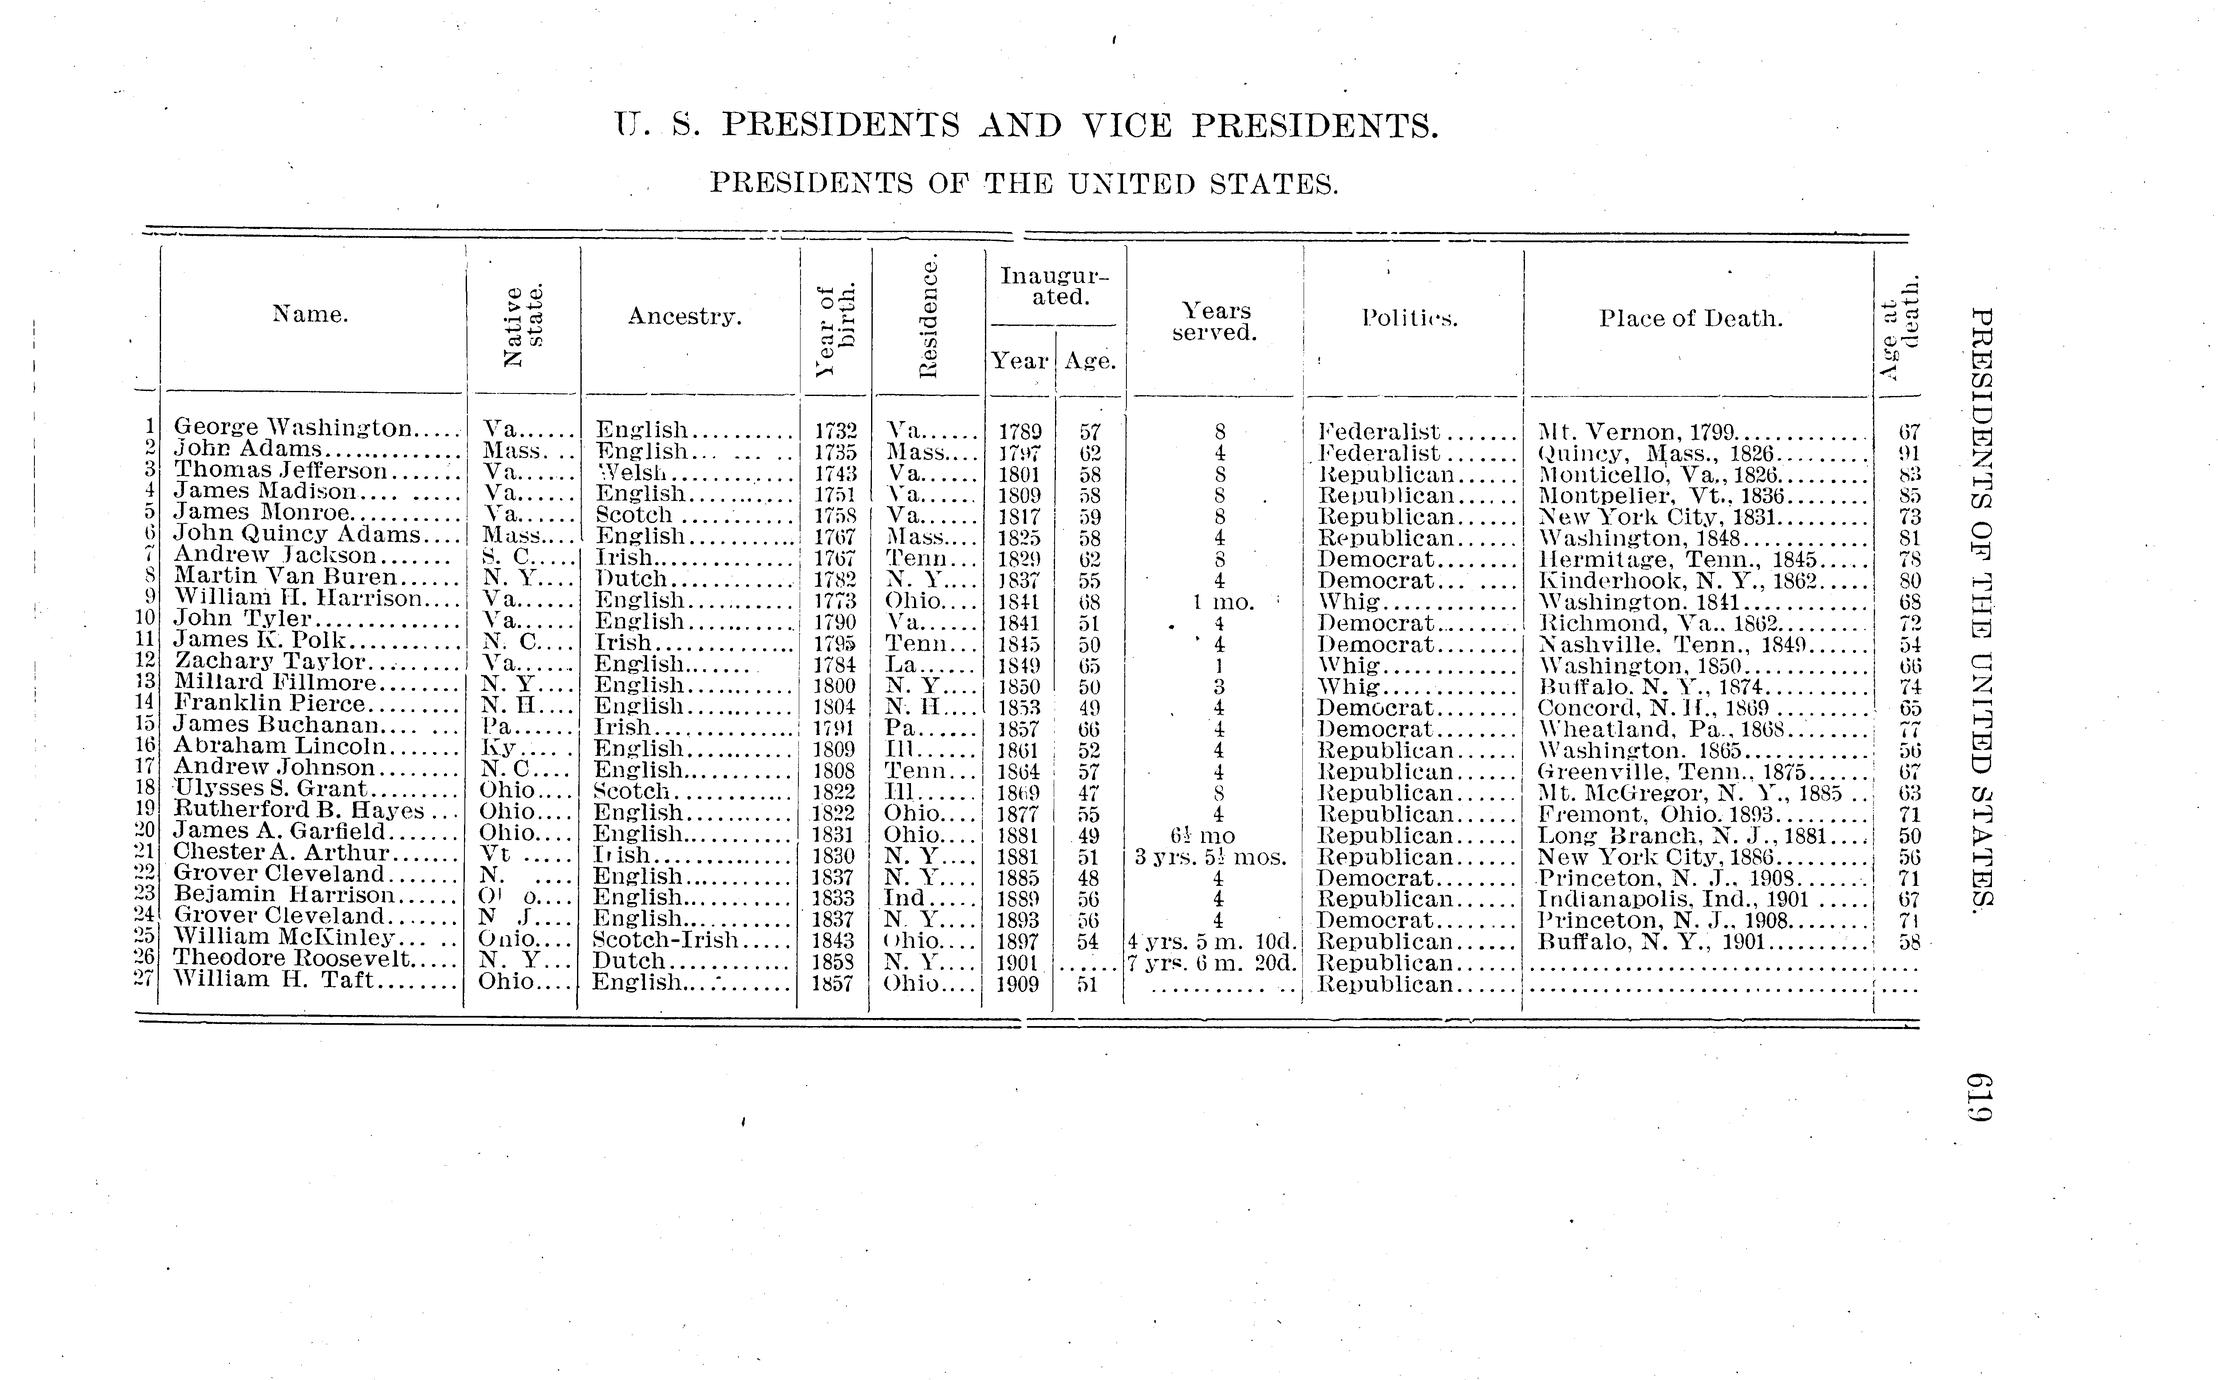 U. S. PRESIDENTS AND VICE PRESIDENTS.
PRESIDENTS OF THE UNITED STATES.
Name. Native state. Ancestry. Year of birth. Residence. Inaugur-ated. Year Age. Years served. Politics. Place of Death. Age at death.
1 George Washington..... Va...... English.......... 1732 Va...... 1789 57 8 Federalist ....... Mt. Vernon, 1799............. 67
2 John Adams.............. Mass. ... English... ... .. 1735 Mass.... 1797 62 4 Federalist ....... Quincy, Mass., 1826......... 91
3 Thomas Jefferson....... Va...... Welsh............ 1743 Va...... 1801 58 8 Republican...... Monticello, Va., 1826........ 83
4 James Madison.... ..... Va...... English.......... 1751 Va...... 1809 58 8 Republican...... Montpelier, Vt., 1836........ 85
5 James Monroe........... Va...... Scotch ........... 1758 Va...... 1817 59 8 Republican...... New York City, 1831......... 73
6 John Quincy Adams.... Mass.... English.......... 1767 Mass.... 1825 58 4 Republican...... Washington, 1848............ 81
7 Andrew Jackson....... S. C..... Irish............. 1767 Tenn... 1829 62 8 Democrat........ Hermitage, Tenn., 1845..... 78
8 Martin Van Buren...... N. Y.... Dutch............ 1782 N. Y.... 1837 55 4 Democrat... .... Kinderhook, N. Y., 1862..... 80
9 William H. Harrison.... Va...... English.......... 1773 Ohio.... 1841 68 1 mo. Whig............ Washington. 1841............ 68
10 John Tyler.............. Va...... English.......... 1790 Va...... 1841 51 4 Democrat........ Richmond, Va.. 1862......... 72
11 James K. Polk........... N. C.... Irish............. 1795 Tenn... 1845 50 4 Democrat........ Nashville. Tenn., 1849...... 54
12 Zachary Taylor......... Va...... English....... 1784 La...... 1849 65 1 Whig............ Washington, 1850............ 66
13 Millard Fillmore........ N. Y.... English.......... 1800 N. Y.... 1850 50 3 Whig............ Buffalo. N. Y., 1874.......... 74
14 Franklin Pierce......... N. H.... English.......... 1804 N. H.... 1853 49 4 Democrat........ Concord, N. H., 1869 ......... 65
15 James Buchanan.... ... Pa...... Irish............. 1791 Pa...... 1857 66 4 Democrat........ Wheatland, Pa., 1868....... 77
16 Abraham Lincoln....... Ky.... . English.......... 1809 Ill...... 1861 52 4 Republican...... Washington. 1865............ 56
17 Andrew Johnson........ N. C.... English.......... 1808 Tenn... 1864 57 4 Republican...... Greenville, Tenn., 1875...... 67
18 Ulysses S. Grant......... Ohio.... Scotch............ 1822 Ill...... 1869 47 8 Republican...... Mt. McGregor, N. Y., 1885 .. 63
19 Rutherford B. Hayes ... Ohio.... English.......... 1822 Ohio.... 1877 55 4 Republican...... Fremont, Ohio. 1893......... 71
20 James A. Garfield....... Ohio.... English.......... 1831 Ohio.... 1881 49 6½ mo Republican...... Long Branch, N. J., 1881.... 50
21 Chester A. Arthur....... Vt ..... Irish............. 1830 N. Y.... 1881 51 3 yrs. 5½ mos. Republican...... New York City, 1886......... 56
22 Grover Cleveland....... N. .... English.......... 1837 N. Y.... 1885 48 4 Democrat........ Princeton, N. J., 1908....... 71
23 Bejamin Harrison...... English.......... 1833 Ind..... 1889 56 4 Republican...... Indianapolis, Ind., 1901 ..... 67
24 Grover Cleveland....... N J.... English.......... 1837 N. Y.... 1893 56 4 Democrat........ Princeton, N. J., 1908........ 71
25 William McKinley... .. Ohio.... Scotch-Irish..... 1843 Ohio.... 1897 54 4 yrs. 5 m. 10d. Republican...... Buffalo, N. Y., 1901.......... 58
26 Theodore Roosevelt..... N. Y... Dutch............ 1858 N. Y.... 1901 ...... 7 yrs. 6 m. 20d. Republican...... .................................. ....
27 William H. Taft........ Ohio.... English.......... 1857 Ohio.... 1909 51 ........... .. Republican...... .................................. ....
PRESIDENTS OF THE UNITED STATES. 619